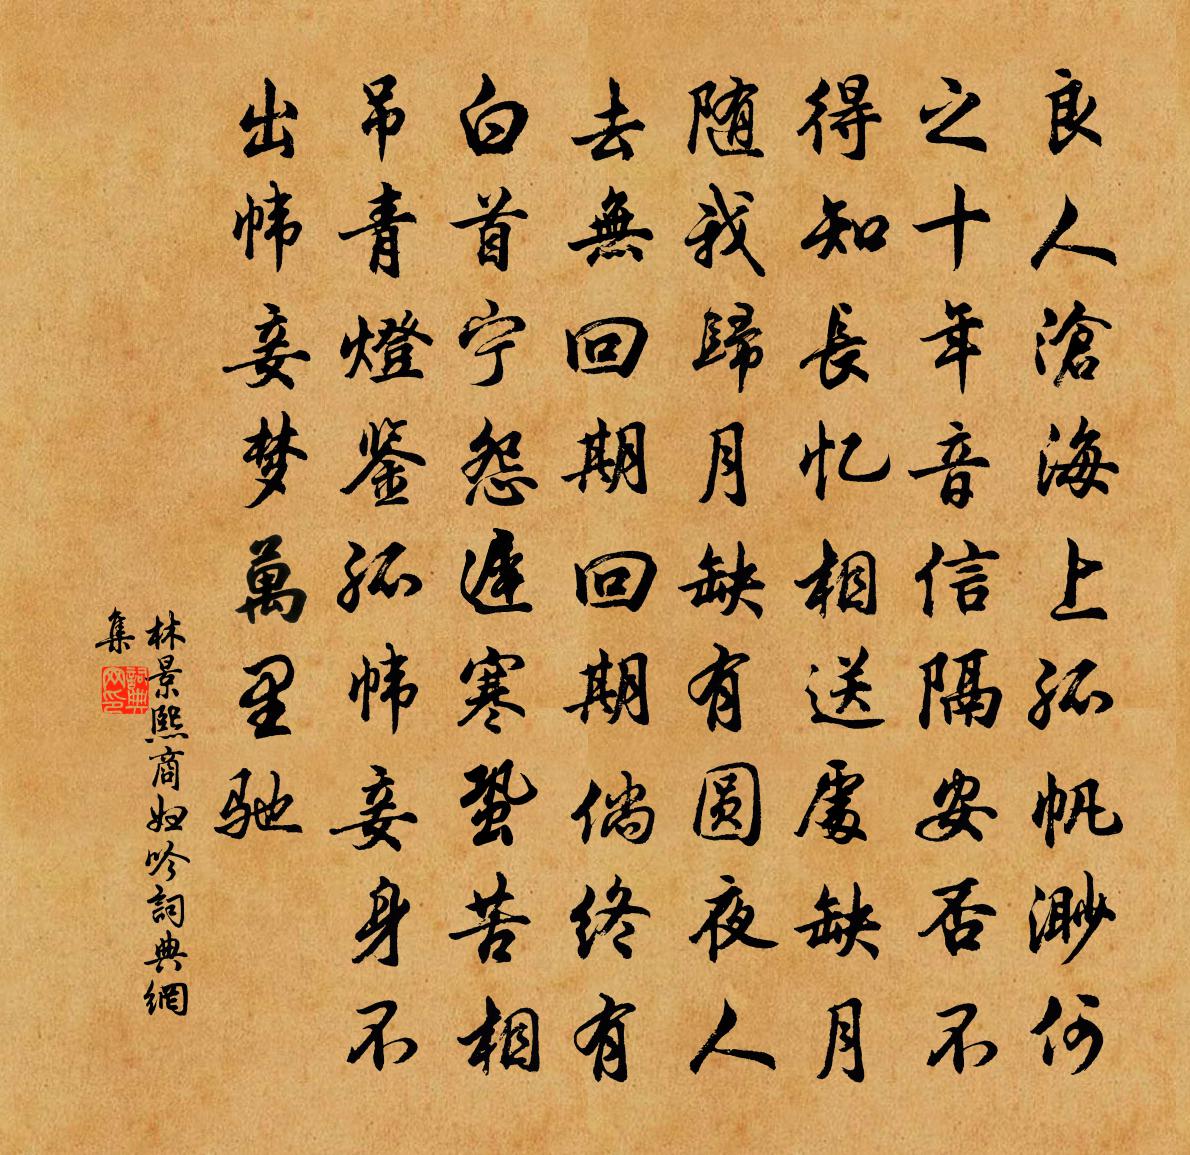 良人滄海上孤帆渺何
之十年音信隔安否不
得知長忆相送處缺月
随我歸月缺有圆夜人
去無回期回期倘终有
白首宁怨遲寒蛩苦相
吊青燈鉴孤帏妾身不
出帏妾梦萬里驰
林景熙商妇吟詞典網
集
詞典網印